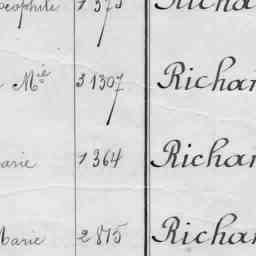 éophile 1 373 Richa
Mie 3 1307 Richar
arie 1 364 Richar
Marie 2 815 Richar